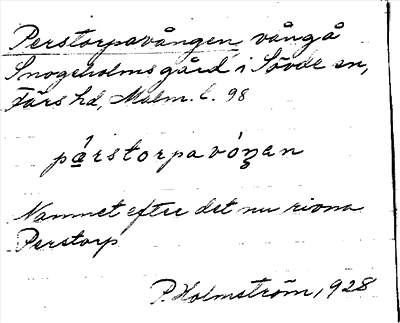 Perstorpavången vång å
Snogeholms gård i Sövde sn,
Färs hd, Malm. l. 98
pä́rstorpavóŋen
Namnet efter det nu rivna
Perstorp
P. Holmström, 1928